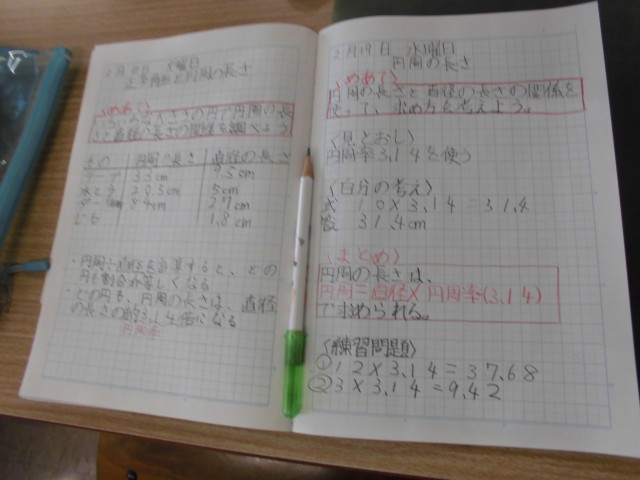 正多角形と円周の長さ
〈めあて〉
いろいろな大きさの円で円周の長
さと直径の長さの関係を調べよう
もの 円周の長さ 直径の長さ
テープ 33cm 9.5cm
5cm
84cm 27cm
1.8cm
・円周÷直径を計算すると、どの
円も割合が等しくなる
・どの円も、円周の長さは、直径
の長さの約3.14倍になる
円周率
2月19日 水曜日
円周の長さ
〈めあて〉
円周の長さと直径の長さの関係を
使って、求め方を考えよう。
〈見とおし〉
円周率3.14を使う
〈自分の考え〉
式 10×3.14=31.4
答 31.4cm
〈まとめ〉
円周の長さは、
円周=直径×円周率(3.14)
で求められる。
〈練習問題〉
①12×3.14=37.68
②3×3.14=9.42